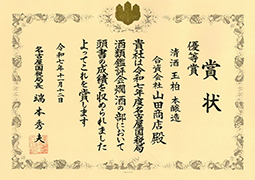 賞状
優等賞
清酒 王柏 本醸造
合資会社 山田商店 殿
貴社は令和七年度名古屋国税局
酒類鑑評会燗酒の部において
頭書の成績を収められました
よってこれを賞します
令和七年十一月十二日
名古屋国税局長 端本秀夫